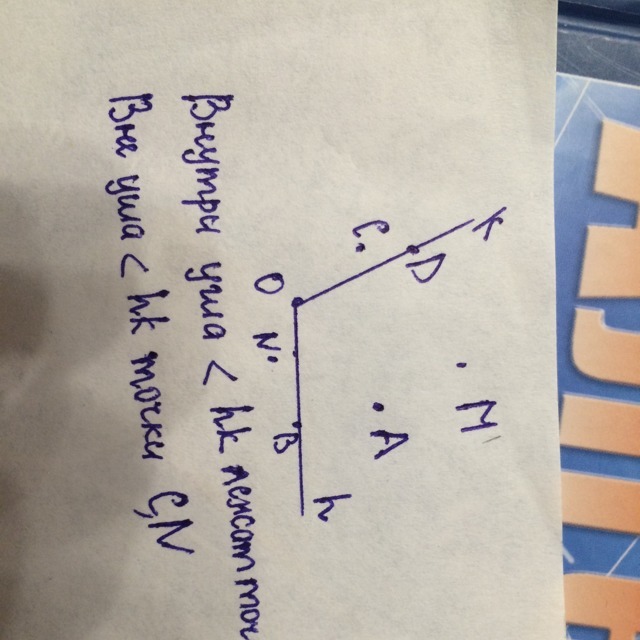 k
D
C
O
M
A
N
B
h
Внутри угла < hk лежат точ
Вне угла < hk точки C,N